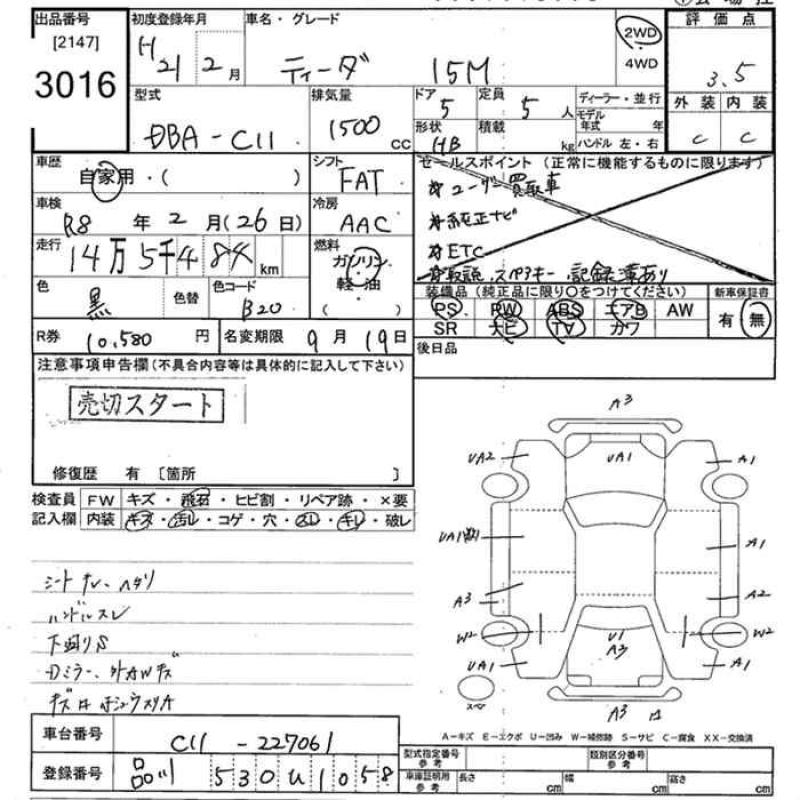 出品番号 初度登録年月 車名・グレード 評価点
[2147]
3016
H21 2月 ティーダ 15M 2WD 4WD 3.5
型式 排気量 ドア 定員 ディーラー・並行 外装 内装
DBA-C11 1500cc 5 5人 モデル年式 年 C C
形状 積載 ハンドル 左・右
HB kg
車歴 シフト セールスポイント(正常に機能するものに限ります)
自家用・( ) FAT ユーザー買取車
車検 冷房 純正ナビ
R8年2月(26日) AAC ETC
走行 燃料 取説、スペアキー、記録簿あり
14万5千484km ガソリン
軽・油
( )
色 色替 色コード 装備品(純正品に限り○をつけてください) 新車保証書
黒 B20 PS PW ABS エアB AW 有 無
SR ナビ TV カワ
R券 10,580円 名変期限 9月19日 後日品
注意事項申告欄(不具合内容等は具体的に記入して下さい)
売切スタート
修復歴 有 [箇所 ]
検査員 FW キズ・飛石・ヒビ割・リペア跡・×要
記入欄 内装 キズ・汚レ・コゲ・穴・スレ・キレ・破レ
A3
UA2 UA1 A1
UA1 A1
A3 A2
W2 U1 W2
A3
UA1 A1
スペア
A3
シートスレ、ヘタリ
ハンドルスレ
下回りS
Dミラー、外AWキズ
A-キズ E-エクボ U-凹み W-補修跡 S-サビ C-腐食 XX-交換済
車台番号 C11-227061
登録番号 品川 530 U 1058
型式指定番号 参考 類別区分番号 参考
車庫証明用 参考 長さ cm 幅 cm 高さ cm